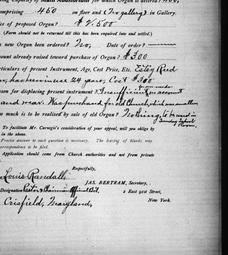 comprising 450 on floor (50 gallery) in Gallery.
of proposed Organ? $1,500
(Form should not be returned till this has been required into and settled.)
new Organ been ordered? No, Date of order?
amount already raised toward purchase of Organ? $300
particulars of present Instrument, Age, Cost Price, Etc. Estey Reed
has been in use 24 years; Cost $300
reason for displacing present instrument? Insufficient on account
and wear. Was purchased for old Church, which was smaller
much is to be realised by sale of old Organ? Nothing, to be used in
Sunday School Room
To facilitate Mr. Carnegie's consideration of your appeal, will you oblige by
the above.
Precise answer to each question is necessary. The leaving of blanks may
correspondence to be filed.
Application should come from Church authorities and not from private
Respectfully,
JAS. BERTRAM, Secretary,
Louis Randall
Designation Pastor &
2 East 91st Street,
Crisfield, Maryland,
New York.